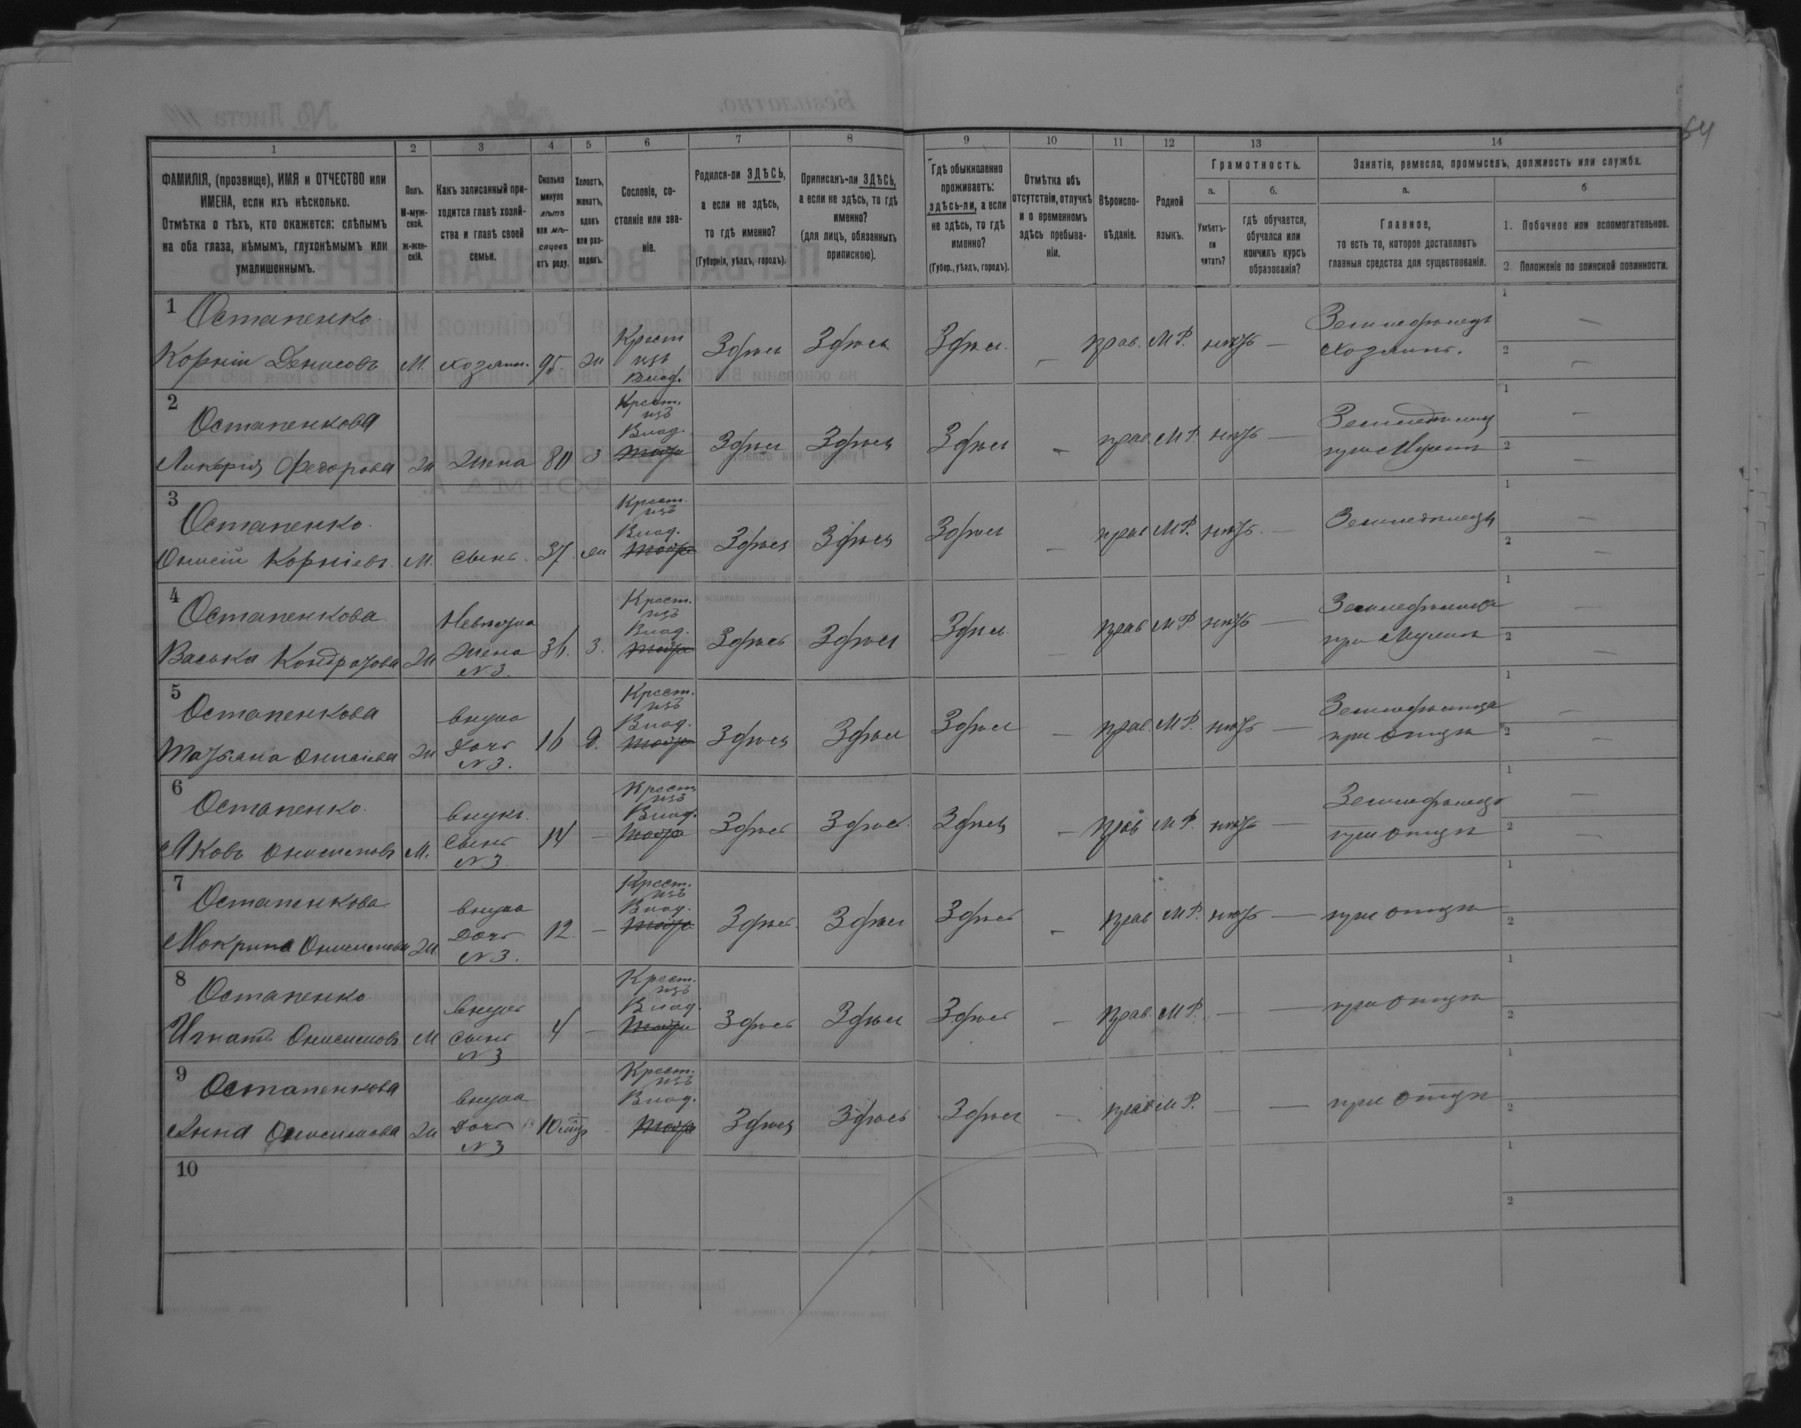 64
1 2 3 4 5 6 7 8 9 10 11 12 13 14
ФАМИЛІЯ, (прозвище), ИМЯ и ОТЧЕСТВО или
ИМЕНА, если ихъ нѣсколько.
Отмѣтка о тѣхъ, кто окажется: слѣпымъ
на оба глаза, нѣмымъ, глухонѣмымъ или
умалишеннымъ.
Полъ.
М-муж-
ской.
ж-жен-
скій.
Какъ записанный при-
ходится главѣ хозяй-
ства и главѣ своей
семьи.
Сколько
минуло
лѣтъ
или мѣ-
сяцевъ
отъ роду.
Холостъ,
женатъ,
вдовъ
или раз-
веденъ.
Сословіе, со-
стояніе или зва-
ніе.
Родился-ли ЗДѢСЬ,
а если не здѣсь,
то гдѣ именно?
(Губернія, уѣздъ, городъ).
Приписанъ-ли ЗДѢСЬ,
а если не здѣсь, то гдѣ
именно?
(для лицъ, обязанныхъ
припискою).
Гдѣ обыкновенно
проживаетъ:
здѣсь-ли, а если
не здѣсь, то гдѣ
именно?
(Губер., уѣздъ, городъ).
Отмѣтка объ
отсутствіи, отлучкѣ
и о временномъ
здѣсь пребыва-
ніи.
Вѣроиспо-
вѣданіе.
Родной
языкъ.
Грамотность.
а.
Умѣетъ-
ли
читать?
б.
гдѣ обучается,
обучался или
кончилъ курсъ
образованія?
Занятіе, ремесло, промыселъ, должность или служба.
а.
Главное,
то есть то, которое доставляетъ
главныя средства для существованія.
б
1. Побочное или вспомогательное.
2. Положеніе по воинской повинности.
1 Остапенко
Корній Денисовъ М. хозяин. 95 ж Крест изъ Влад. Здѣсь Здѣсь Здѣсь — прав. М.Р. нѣтъ — Земледѣлецъ хозяинъ. 1 — 2 —
2 Остапенкова
Федорова ж жена 80 з Крест. изъ Влад. Здѣсь Здѣсь Здѣсь — прав М.Р. нѣтъ — при мужѣ 1 — 2 —
3 Остапенко
Корніевъ М. сынъ. 37 ж Крест. изъ Влад. Здѣсь Здѣсь Здѣсь — прав М.Р. нѣтъ — Земледѣлецъ 1 — 2 —
4 Остапенкова
Васька Кондратова ж Невѣстка жена №3. 36. з. Крест. изъ Влад. Здѣсь Здѣсь Здѣсь — прав М.Р. нѣтъ — при мужѣ 1 — 2 —
5 Остапенкова
Татьяна ж внука дочь №3. 16 д. Крест. изъ Влад. Здѣсь Здѣсь Здѣсь — прав. М.Р. нѣтъ — при отцѣ 1 — 2 —
6 Остапенко
Яковъ Онисимовъ М. внукъ сынъ №3 14 — Крест изъ Влад. Здѣсь Здѣсь Здѣсь — прав М.Р. нѣтъ — Земледѣлецъ при отцѣ 1 — 2 —
7 Остапенкова
Мокрина Онисимова ж внука дочь №3. 12 — Крест. изъ Влад. Здѣсь Здѣсь Здѣсь — прав М.Р. нѣтъ — при отцѣ 1 2
8 Остапенко
Игнатъ Онисимовъ М внукъ сынъ №3 4 — Крест. изъ Влад Здѣсь Здѣсь Здѣсь — прав. М.Р. — — при отцѣ 1 2
9 Остапенкова
Анна Онисимова ж внука дочь №3 10 — Крест. изъ Влад. Здѣсь Здѣсь Здѣсь — прав М.Р. — — при отцѣ 1 2
10 1 2